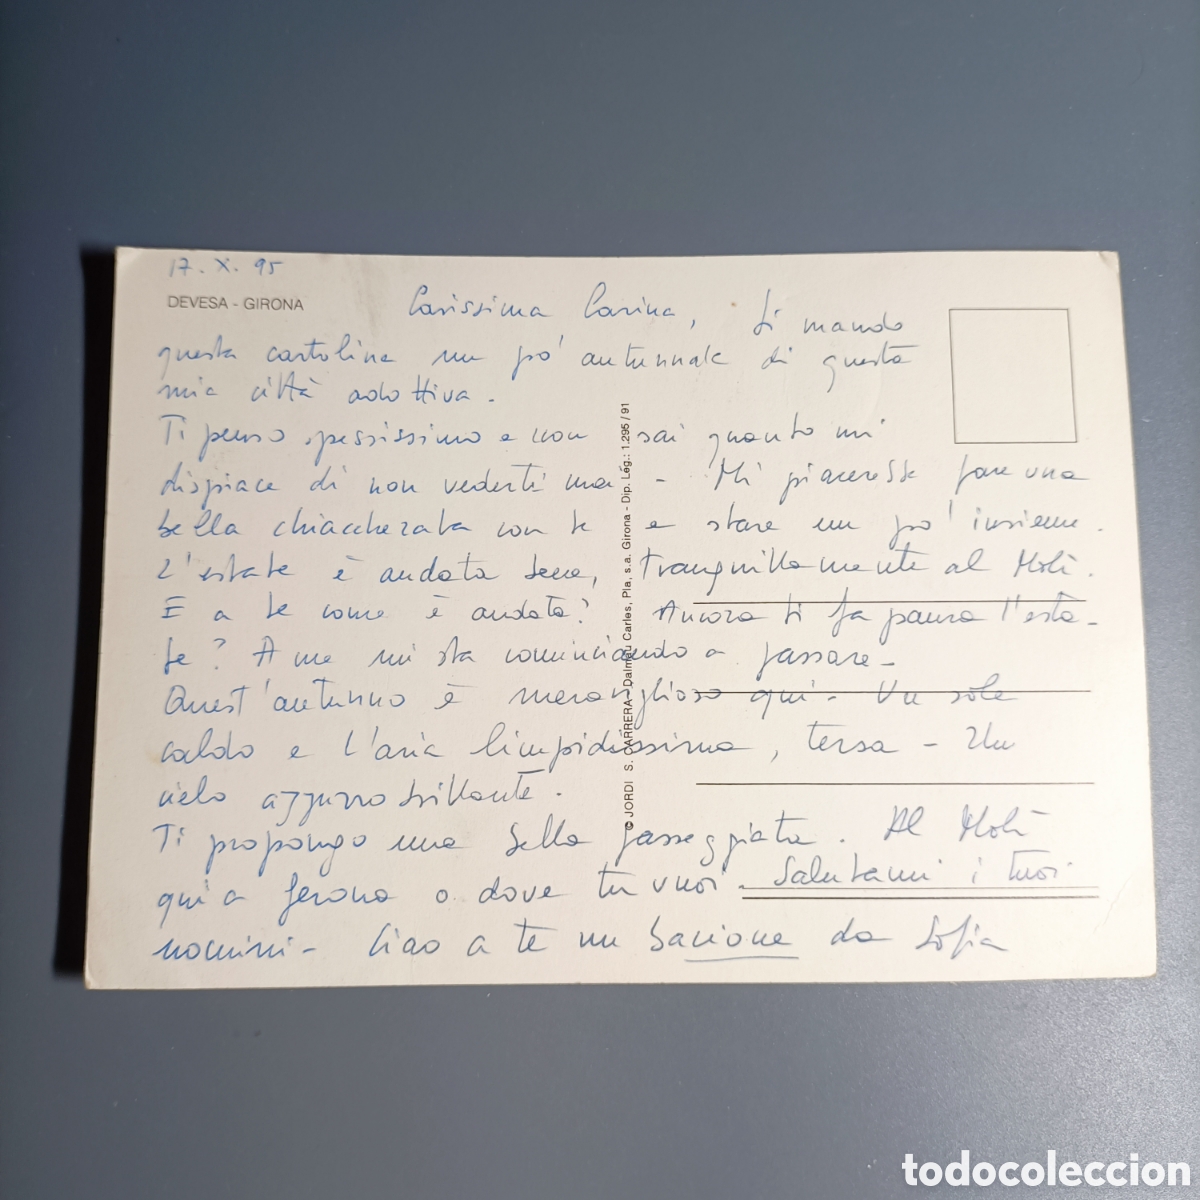 17. X. 95
DEVESA - GIRONA
Carissima Carina, ti mando
questa cartolina un po' autunnale di questa
mia città adottiva.
Ti penso spessissimo e non sai quanto mi
dispiace di non vederti mai - Mi piacerebbe fare una
bella chiaccherata con te e stare un po' insieme.
L'estate è andata bene, tranquillamente al Molì.
E a te come è andata? Ancora ti fa paura l'esta-
te? A me mi sta cominciando a passare -
Quest'autunno è meraviglioso qui - Un sole
caldo e l'aria limpidissima, tersa - Un
cielo azzurro brillante.
Ti propongo una bella passeggiata. Al Molì
qui a Gerona o dove tu vuoi - Salutami i tuoi
nomini - Ciao a te un bacione da Sofia
© JORDI S. CARRERA - Dalmau Carles, Pla, s.a. Girona - Dip. Lèg.: 1.295 / 91
todocoleccion